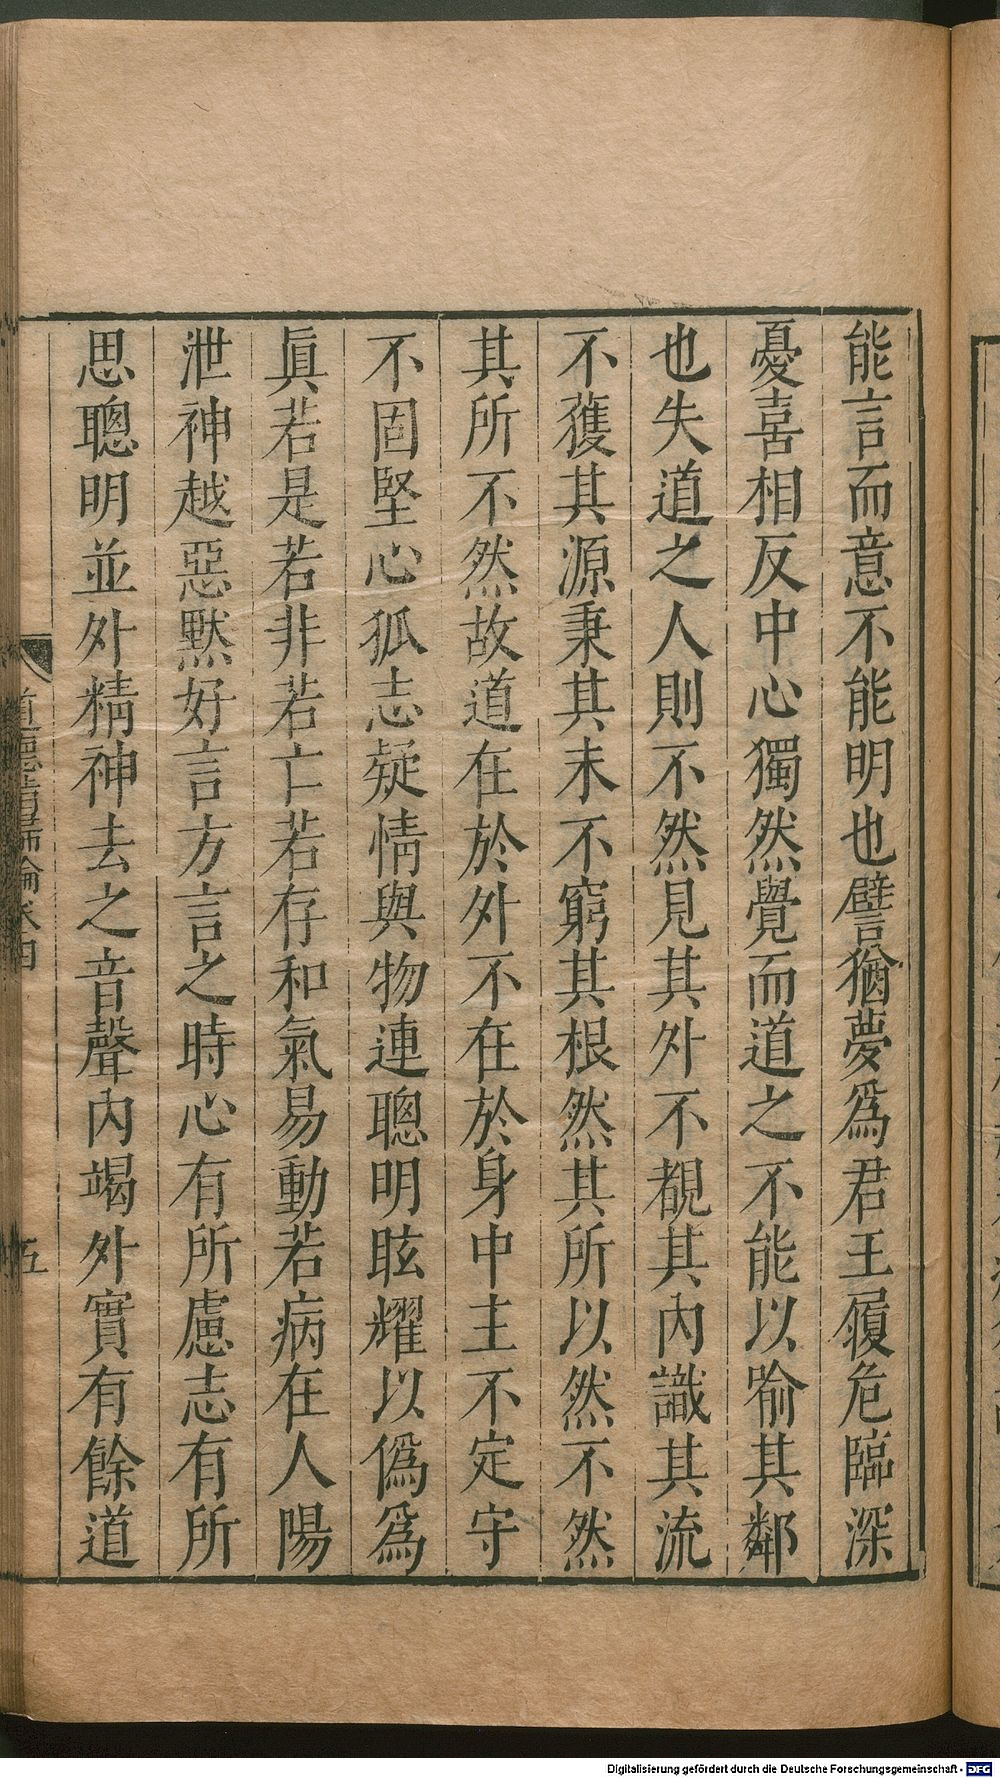 能言而意不能明也譬猶夢爲君王履危臨深
憂喜相反中心獨然覺而道之不能以喻其鄰
也失道之人則不然見其外不覩其內識其流
不獲其源秉其末不窮其根然其所以然不然
其所不然故道在於外不在於身中主不定守
不固堅心狐志疑情與物連聰明眩耀以僞爲
眞若是若非若亡若存和氣易動若病在人陽
泄神越惡默好言方言之時心有所慮志有所
思聰明並外精神去之音聲內竭外實有餘道
道德指歸論卷四
五
Digitalisierung gefördert durch die Deutsche Forschungsgemeinschaft - DFG